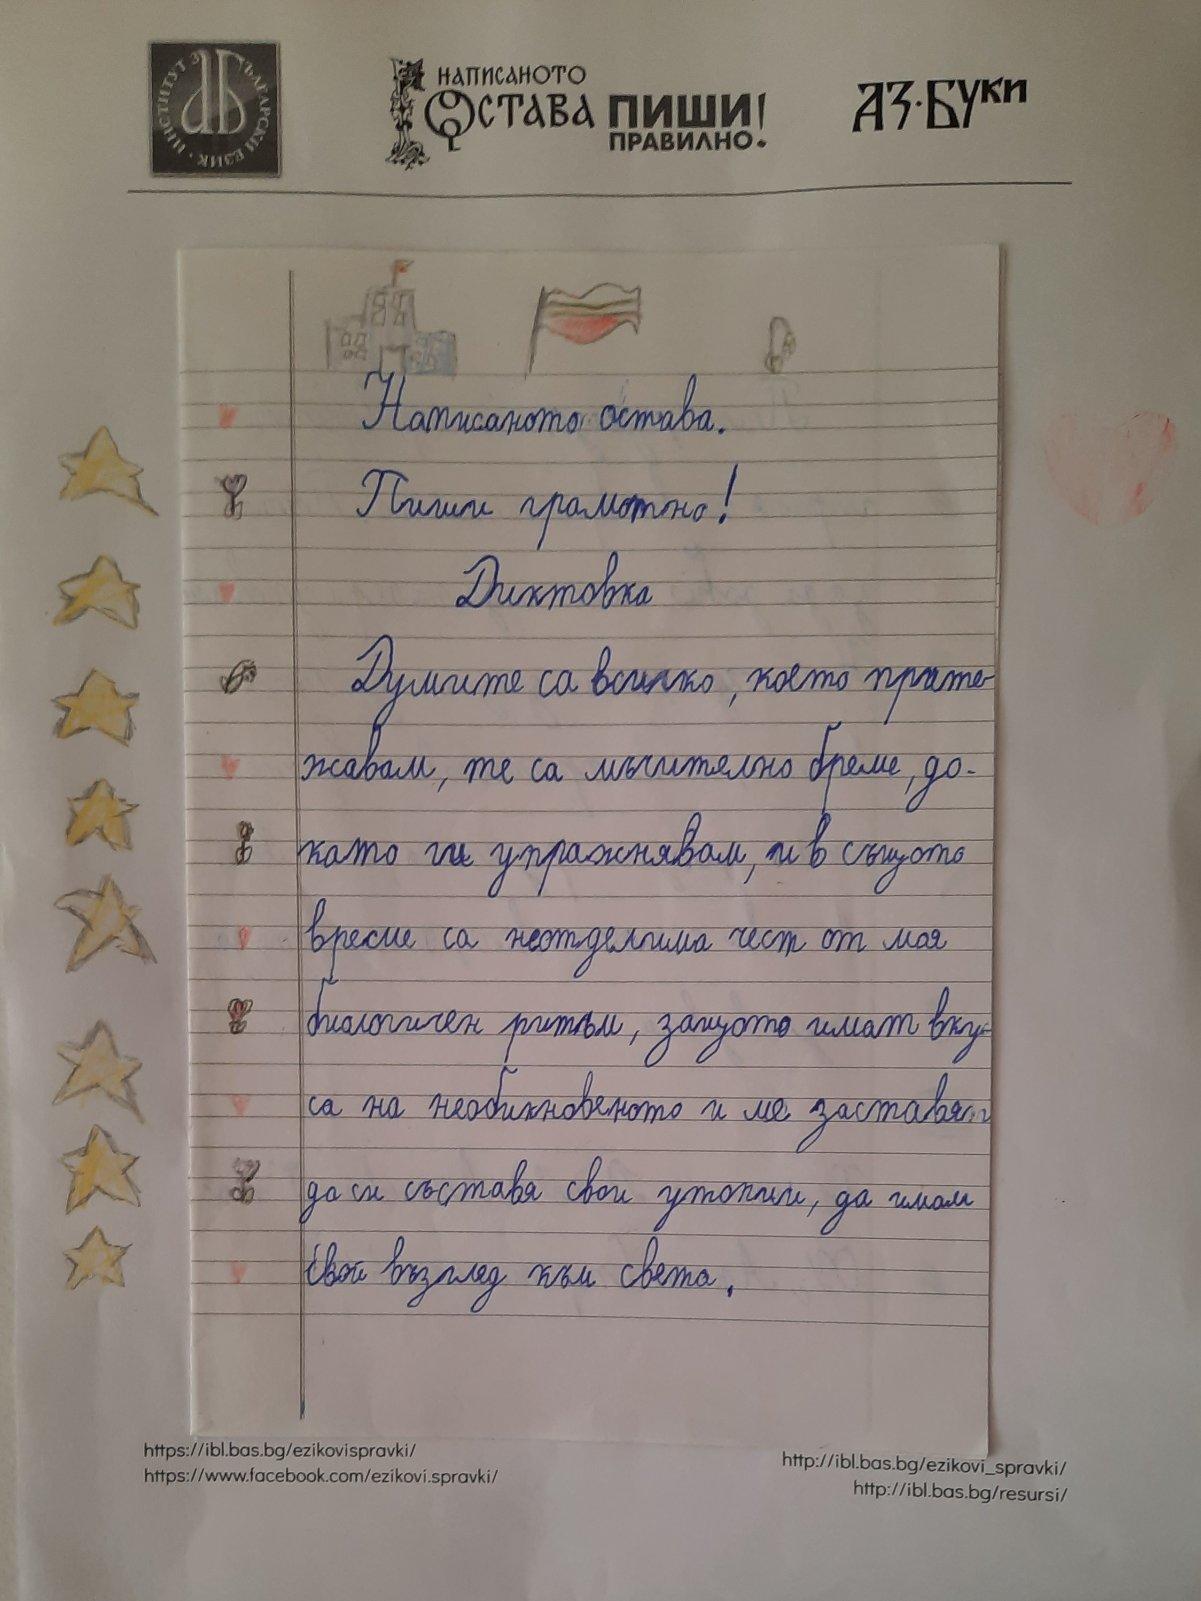 ИНСТИТУТ ЗА БЪЛГАРСКИ ЕЗИК
НАПИСАНОТО
ОСТАВА ПИШИ
ПРАВИЛНО!
АЗ·БУКИ
Написаното остава.
Пиши грамотно!
Диктовка
Думите са всичко, което прите-
жавам, те са мъчително бреме, до-
като ги упражнявам, и в същото
време са неотделима чест от моя
биологичен ритъм, защото имат вку-
са на необикновеното и ме заставят
да си съставя свои утопии, да имам
свой възглед към света.
https://ibl.bas.bg/ezikovispravki/
https://www.facebook.com/ezikovi.spravki/
http://ibl.bas.bg/ezikovi_spravki/
http://ibl.bas.bg/resursi/